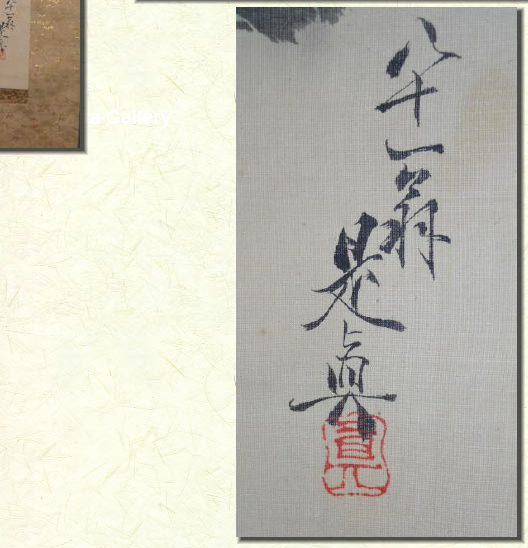 八十一翁
是真
Gallery